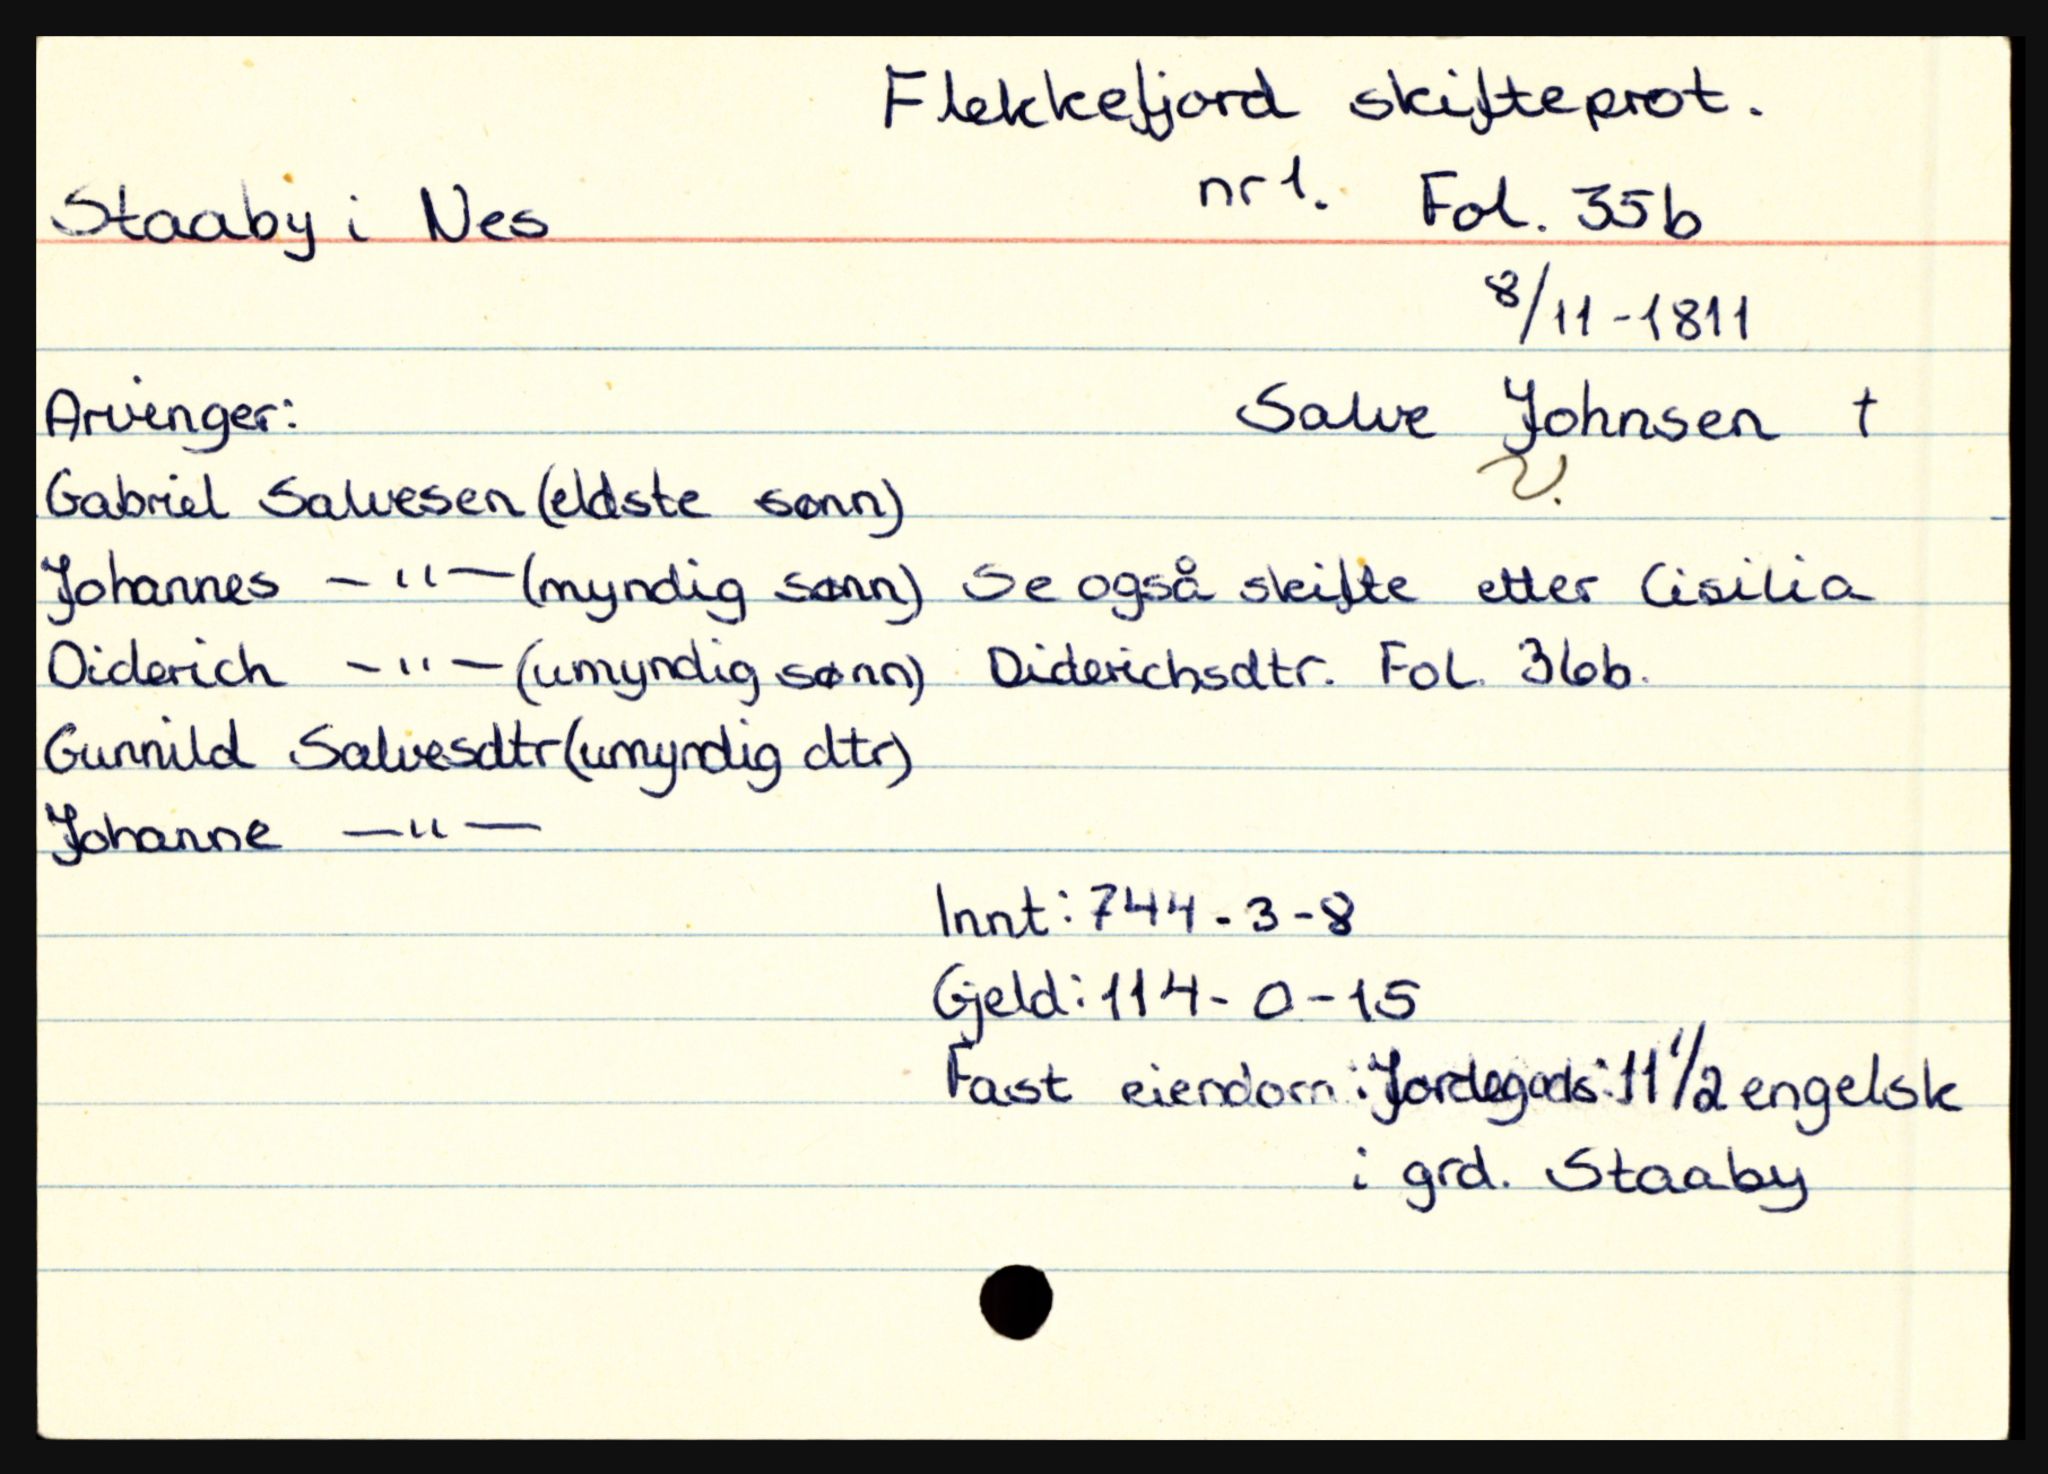 Flekkefjord skifteprot.
Staaby i Nes nr 1. Fol. 35b
8/11-1811
Arvinger: Salve Johnsen †
Gabriel Salvesen (eldste sønn)
Johannes —"— (myndig sønn) Se også skifte etter Cisilia
Diderich —"— (umyndig sønn) Diderichsdtr. Fol. 36b.
Gunnild Salvesdtr (umyndig dtr)
Johanne —"—
Innt: 744-3-8
Gjeld: 114-0-15
Fast eiendom: Jordegods: 11 1/2 engelsk
i grd. Staaby